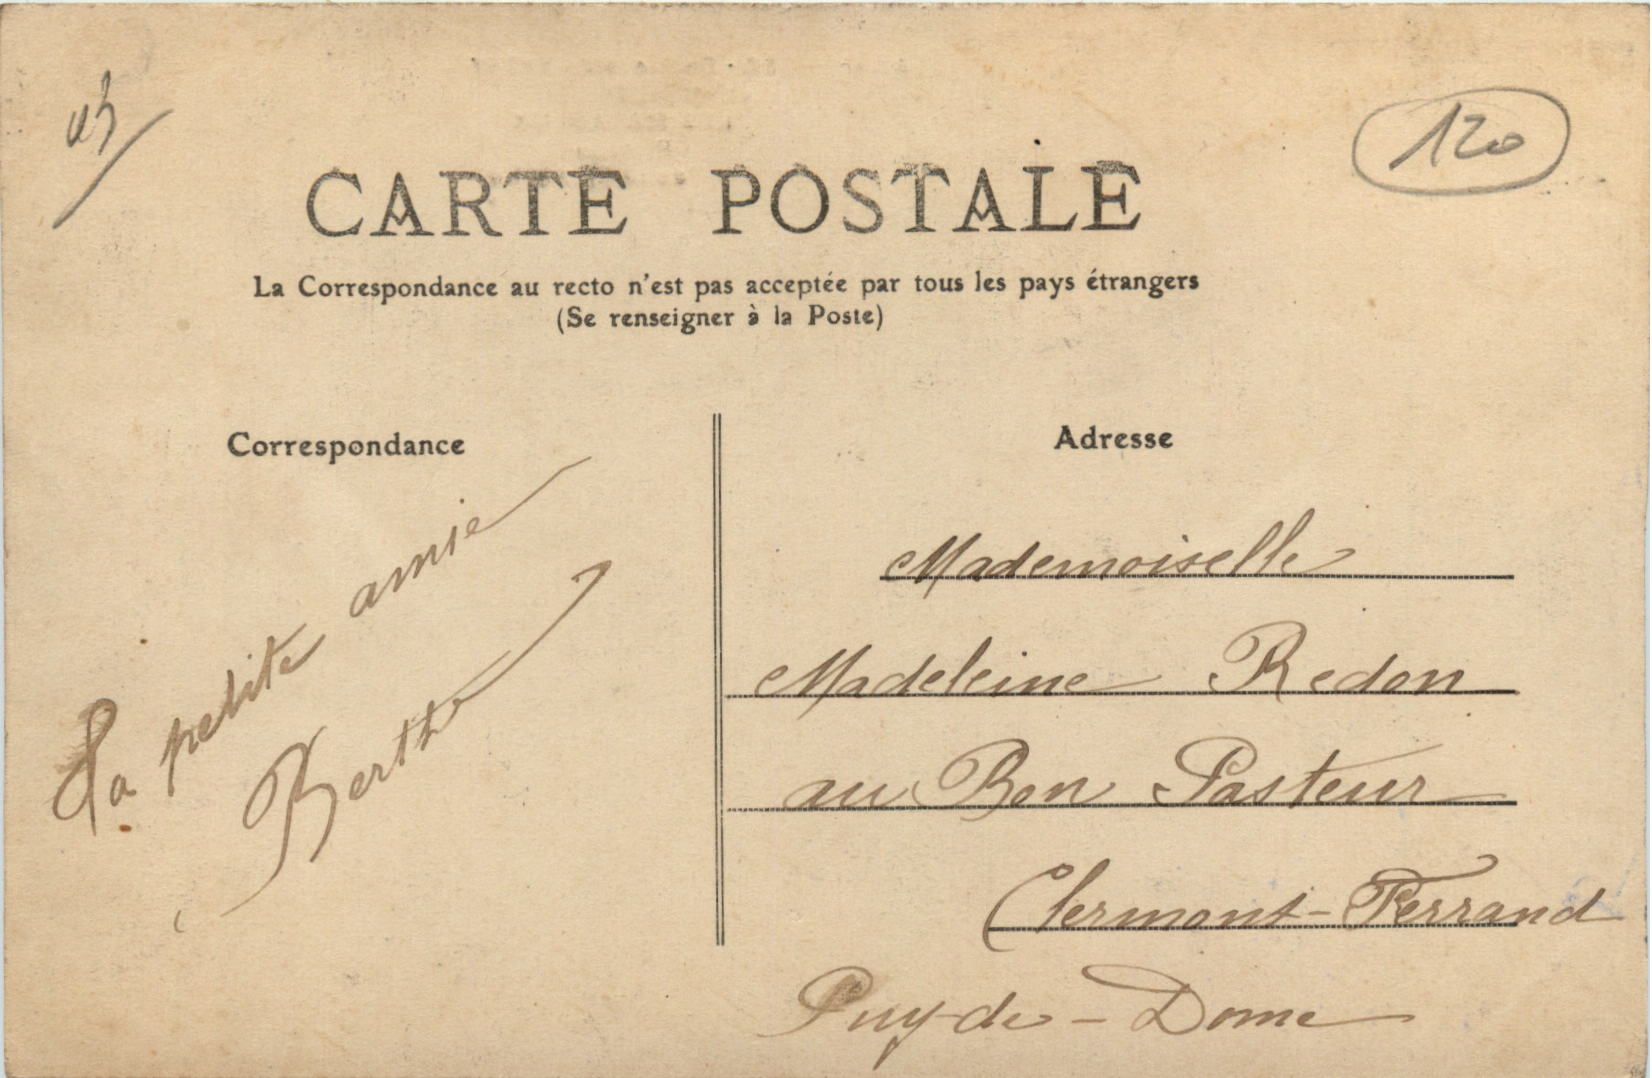 120
CARTE POSTALE
La Correspondance au recto n'est pas acceptée par tous les pays étrangers
(Se renseigner à la Poste)
Correspondance
Ta petite amie
Berthe
Adresse
Mademoiselle
Madeleine Redon
au Bon Pasteur
Clermont-Ferrand
Puy-de-Dome